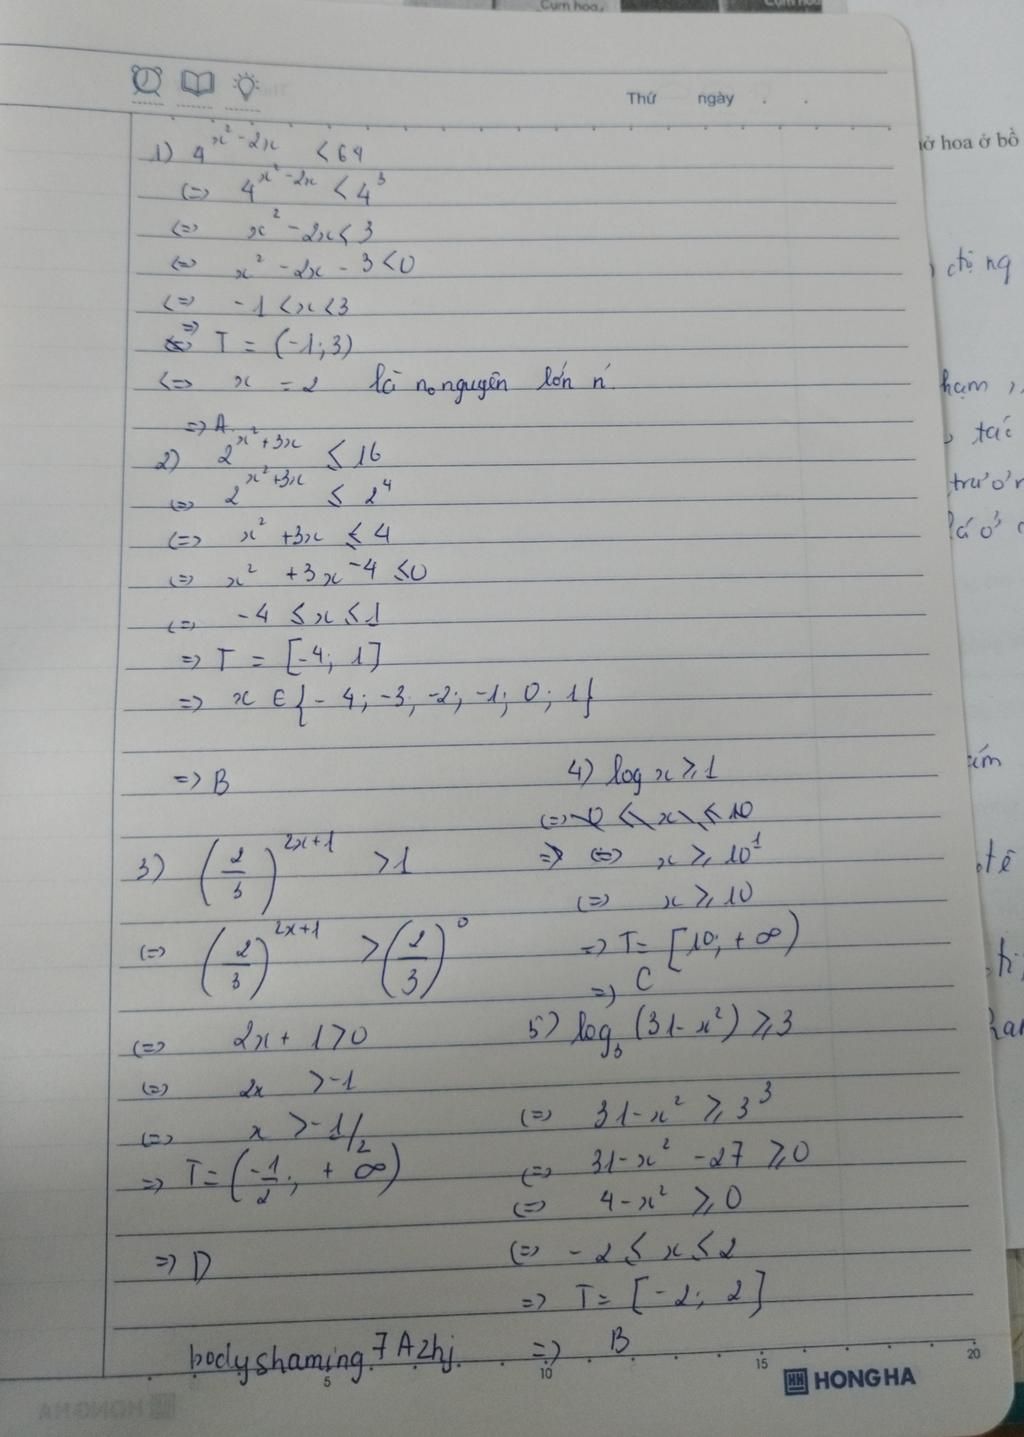 Cụm hoa,
Thứ ngày . .
1) 4^{x^2 - 2x} < 64
<=> 4^{x^2 - 2x} < 4^3
<=> x^2 - 2x < 3
<=> x^2 - 2x - 3 < 0
<=> -1 < x < 3
=> T = (-1; 3)
<=> x = 2 là n_o nguyên lớn n'
=> A.
2) 2^{x^2 + 3x} ≤ 16
<=> 2^{x^2 + 3x} ≤ 2^4
<=> x^2 + 3x ≤ 4
<=> x^2 + 3x - 4 ≤ 0
<=> -4 ≤ x ≤ 1
=> T = [-4; 1]
=> x ∈ {-4; -3; -2; -1; 0; 1}
=> B
3) (2/3)^{2x+1} > 1
<=> (2/3)^{2x+1} > (2/3)^0
<=> 2x + 1 > 0
<=> 2x > -1
<=> x > -1/2
=> T = (-1/2; +∞)
=> D
4) log x ≥ 1
<=> 0 < x ≤ 10
=> <=> x ≥ 10^1
<=> x ≥ 10
=> T = [10; +∞)
=> C
5) log_3 (31 - x^2) ≥ 3
<=> 31 - x^2 ≥ 3^3
<=> 31 - x^2 - 27 ≥ 0
<=> 4 - x^2 ≥ 0
<=> -2 ≤ x ≤ 2
=> T = [-2; 2]
=> B
body shaming 7A2hj.
5 10 15 20
HONG HA
ở hoa ở bồ
động
hạm
tác
trườn
lá ở
ám
tê